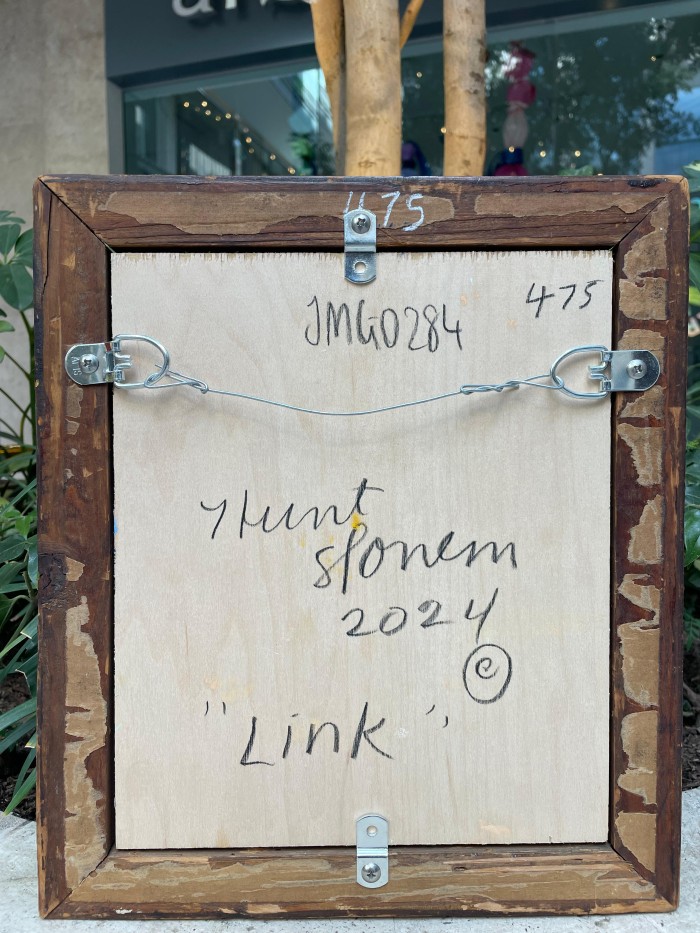 475
475
JMG0284
Hunt
slonem
2024
©
"Link"